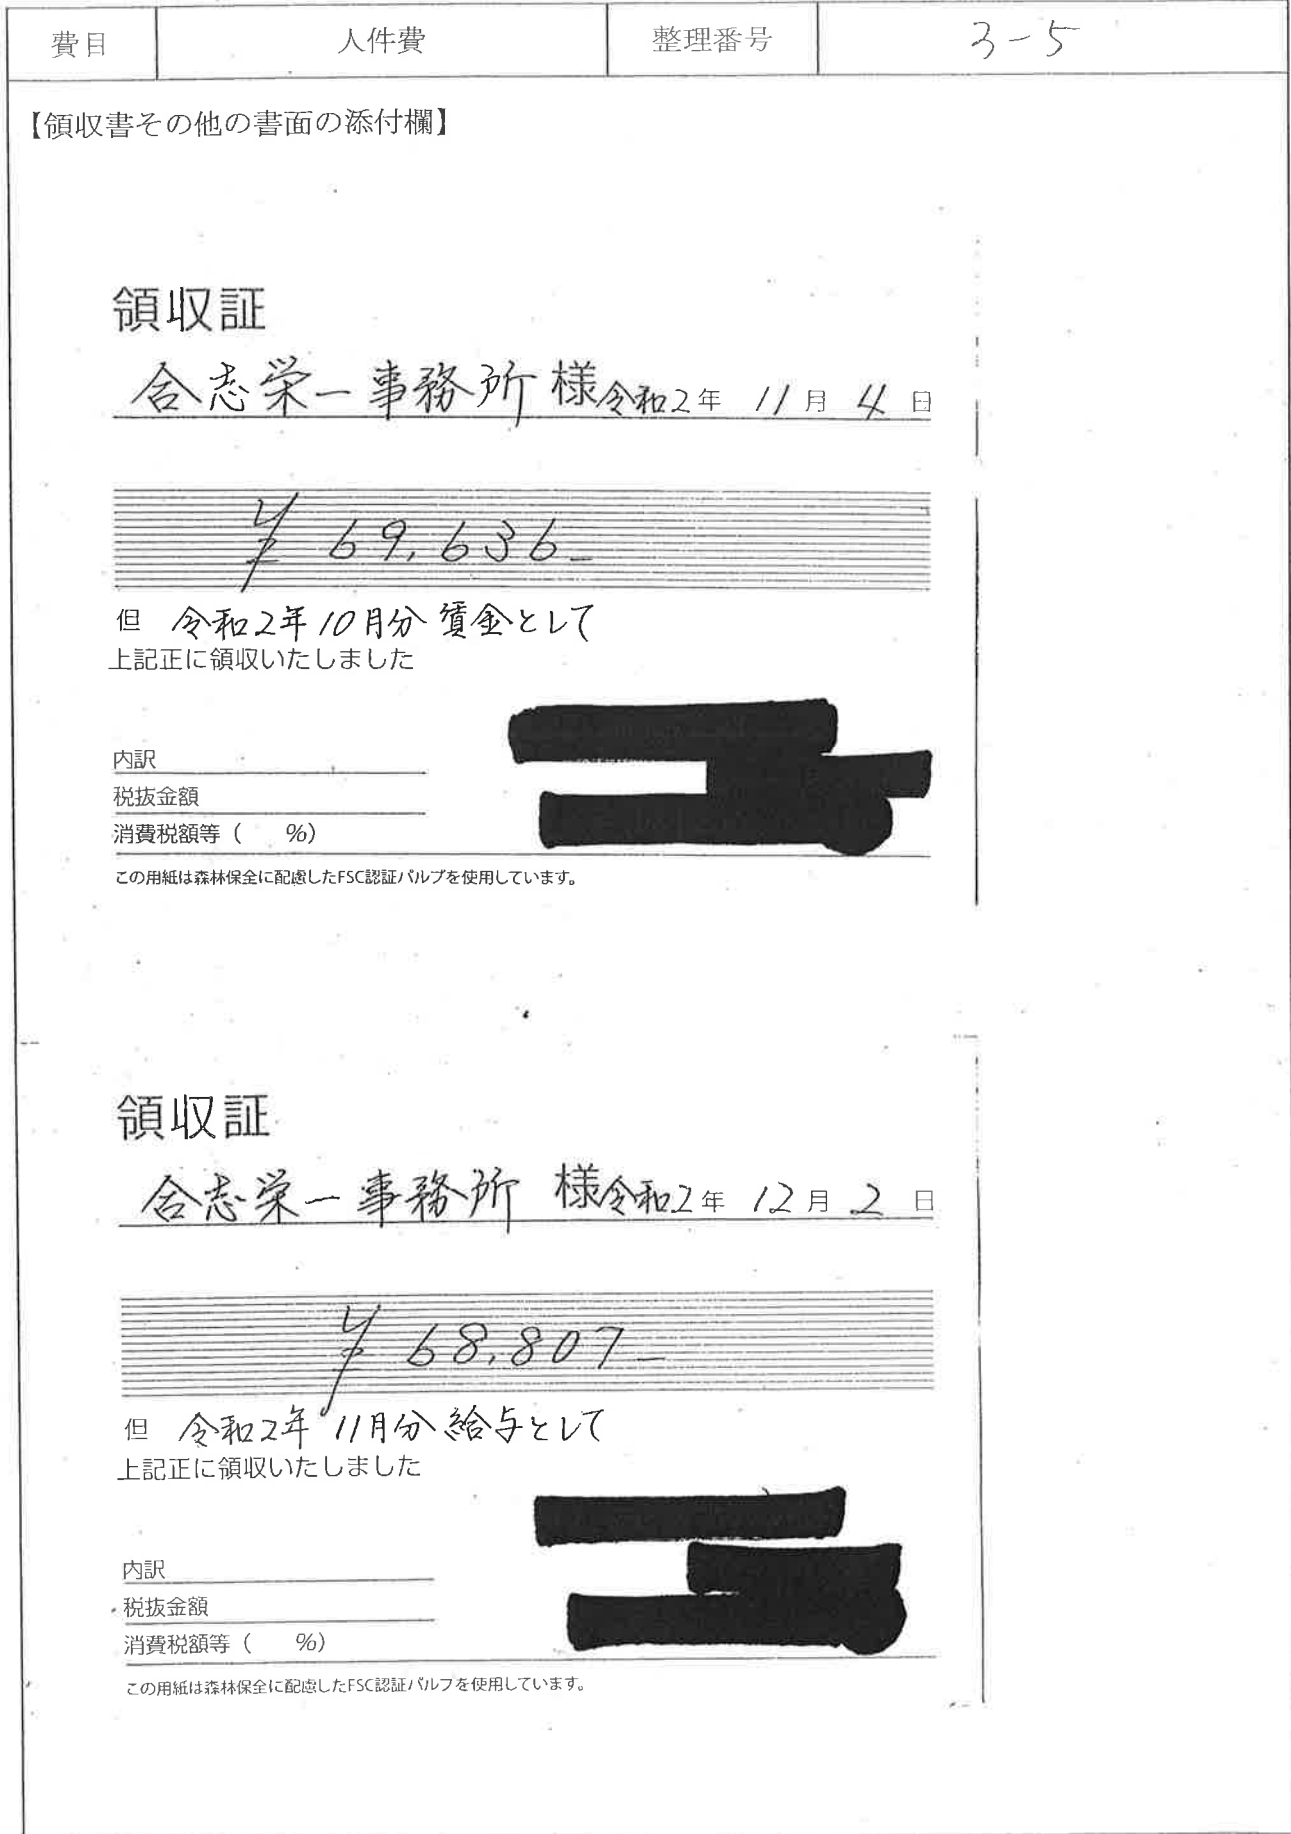 費目 人件費 整理番号 3-5
【領収書その他の書面の添付欄】
領収証
合志栄一事務所 様 令和2年 11月 4日
¥69,636-
但 令和2年10月分 賃金として
上記正に領収いたしました
内訳
税抜金額
消費税額等( %)
この用紙は森林保全に配慮したFSC認証パルプを使用しています。
領収証
合志栄一事務所 様 令和2年 12月 2日
¥68,807-
但 令和2年11月分 給与として
上記正に領収いたしました
内訳
税抜金額
消費税額等( %)
この用紙は森林保全に配慮したFSC認証パルプを使用しています。